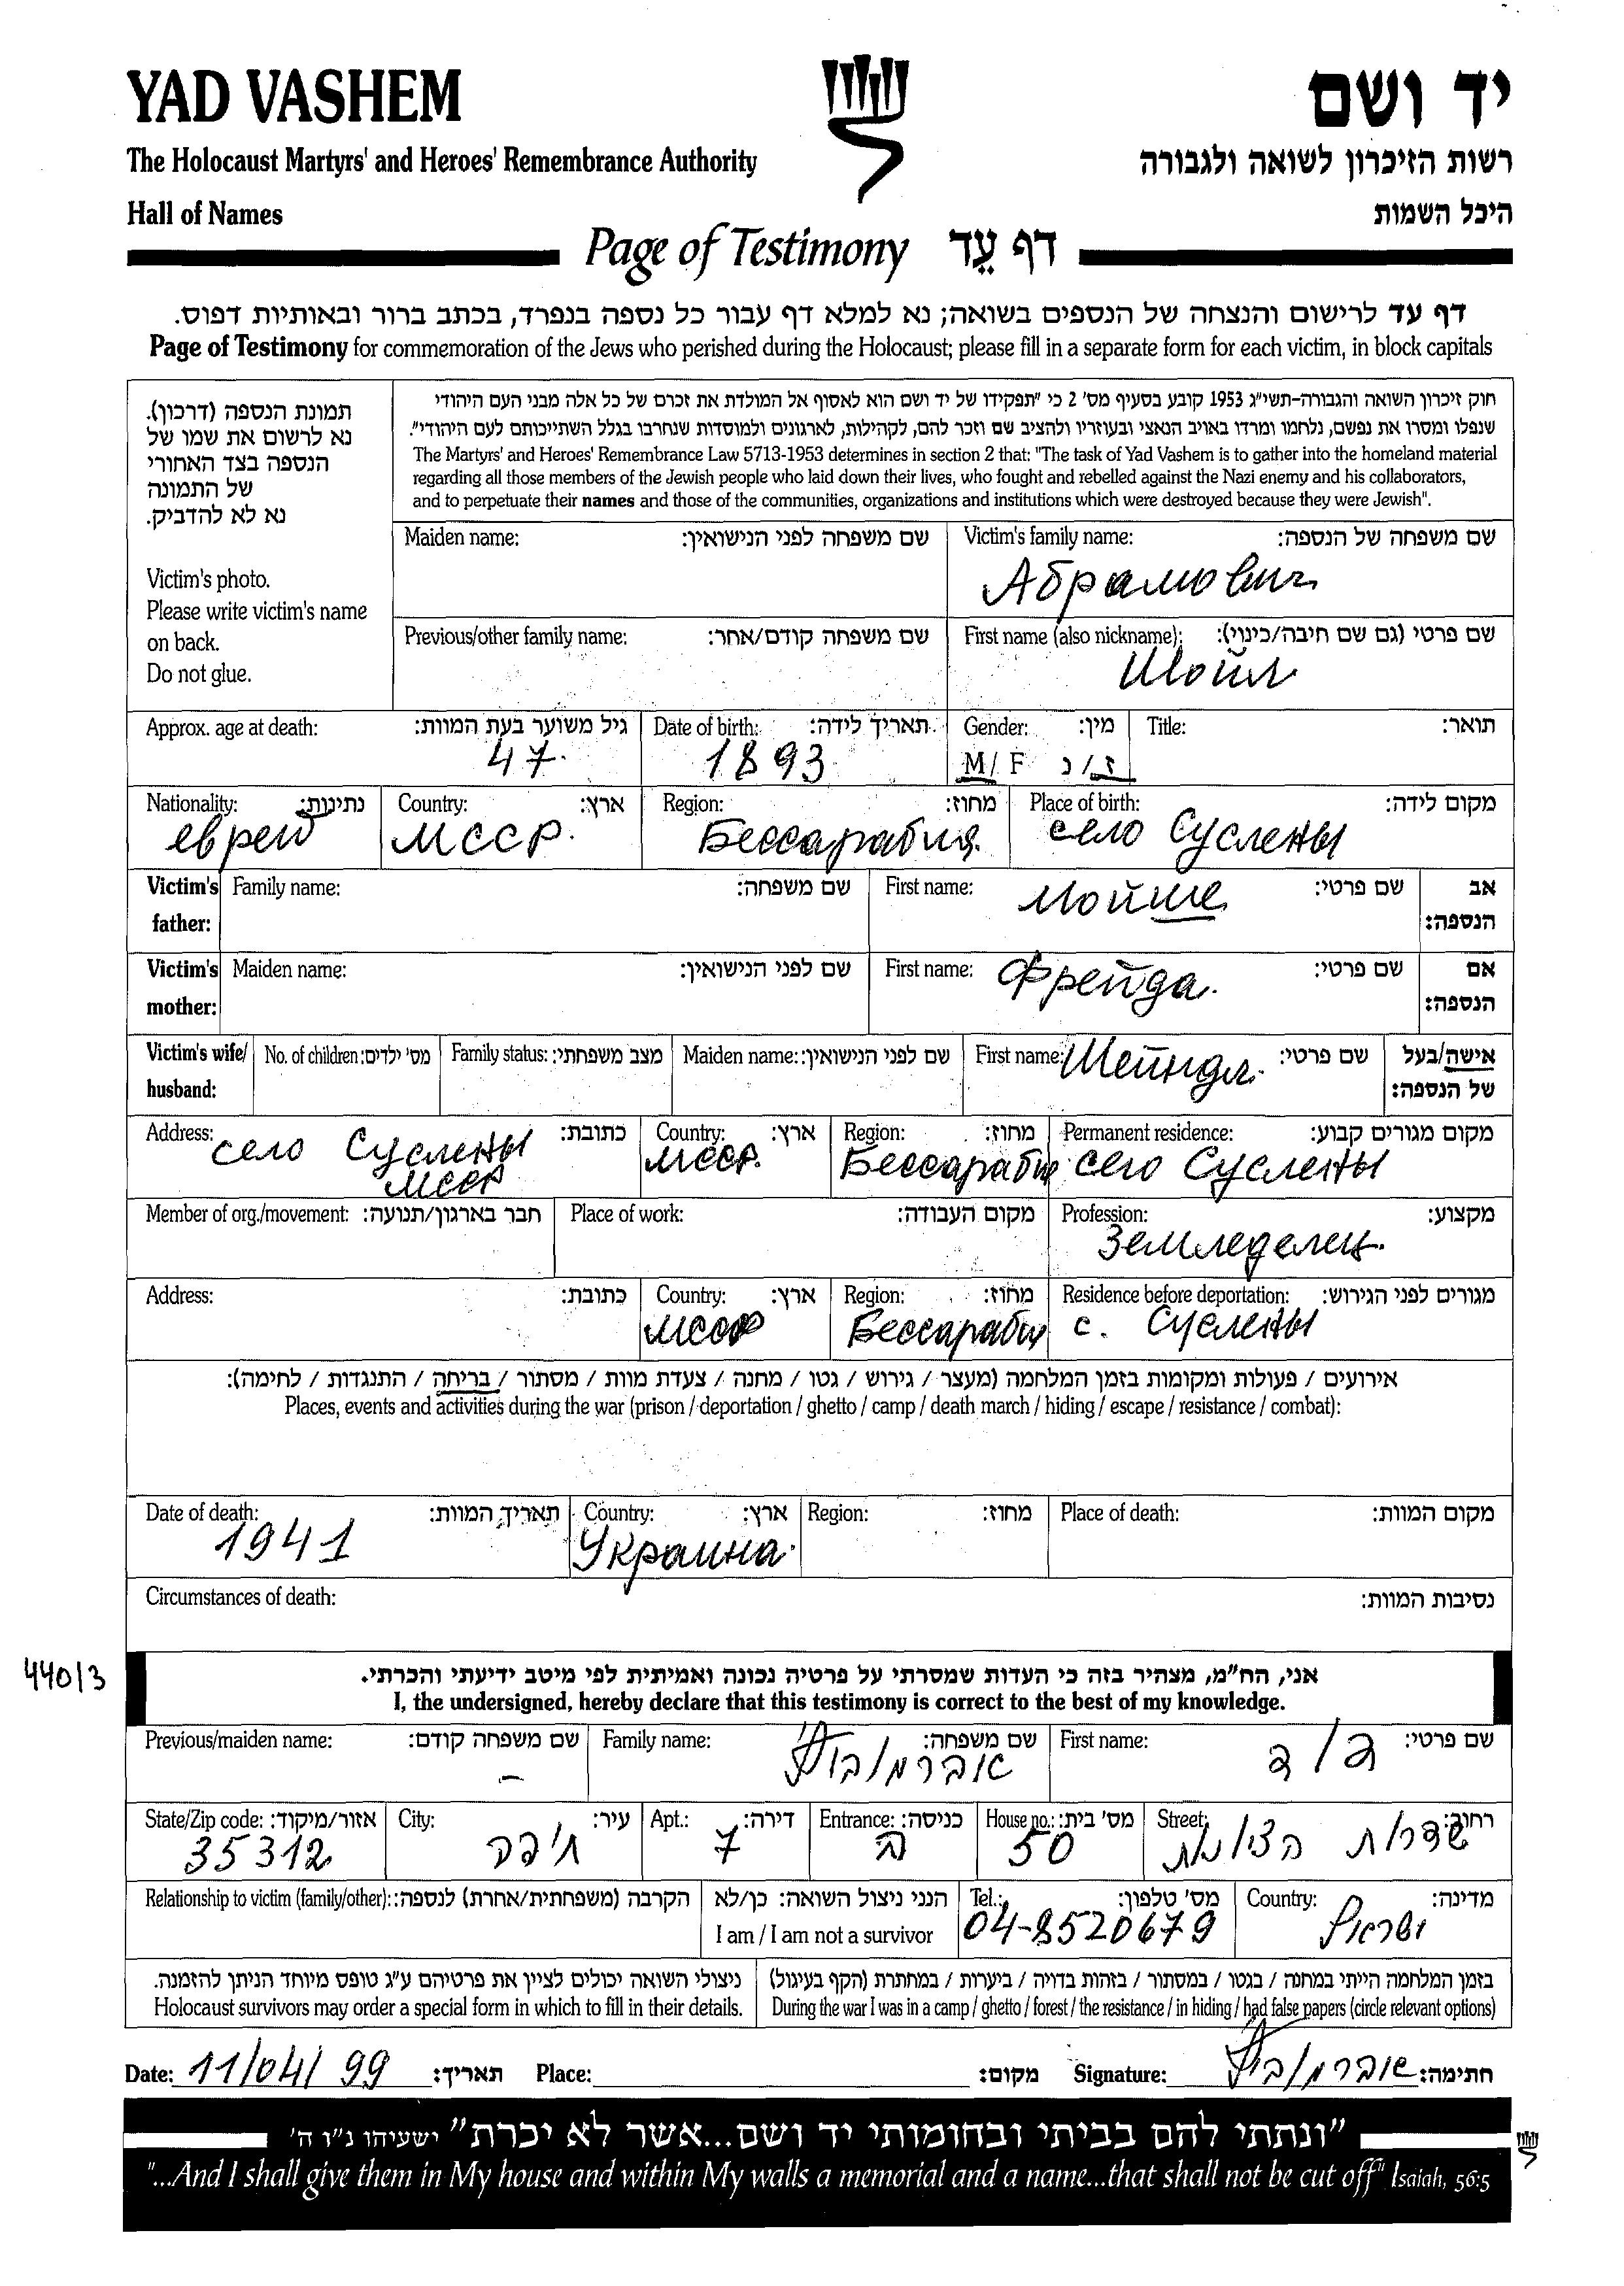 YAD VASHEM
יד ושם
The Holocaust Martyrs' and Heroes' Remembrance Authority
רשות הזיכרון לשואה ולגבורה
Hall of Names
היכל השמות
Page of Testimony דף עֵד
דף עד לרישום והנצחה של הנספים בשואה; נא למלא דף עבור כל נספה בנפרד, בכתב ברור ובאותיות דפוס.
Page of Testimony for commemoration of the Jews who perished during the Holocaust; please fill in a separate form for each victim, in block capitals
תמונת הנספה (דרכון).
נא לרשום את שמו של
הנספה בצד האחורי
של התמונה
נא לא להדביק.
Victim's photo.
Please write victim's name
on back.
Do not glue.
חוק זיכרון השואה והגבורה-תשי"ג 1953 קובע בסעיף מס' 2 כי "תפקידו של יד ושם הוא לאסוף אל המולדת את זכרם של כל אלה מבני העם היהודי
שנפלו ומסרו את נפשם, נלחמו ומרדו באויב הנאצי ובעוזריו ולהציב שם וזכר להם, לקהילות, לארגונים ולמוסדות שנחרבו בגלל השתייכותם לעם היהודי".
The Martyrs' and Heroes' Remembrance Law 5713-1953 determines in section 2 that: "The task of Yad Vashem is to gather into the homeland material
regarding all those members of the Jewish people who laid down their lives, who fought and rebelled against the Nazi enemy and his collaborators,
and to perpetuate their names and those of the communities, organizations and institutions which were destroyed because they were Jewish".
Maiden name: שם משפחה לפני הנישואין: Victim's family name: שם משפחה של הנספה:
Абрамович
Previous/other family name: שם משפחה קודם/אחר: First name (also nickname): שם פרטי (גם שם חיבה/כינוי):
Шойл
Approx. age at death: גיל משוער בעת המוות: Date of birth: תאריך לידה: Gender: מין: Title: תואר:
47. 1893 M/F ז/נ
Nationality: נתינות: Country: ארץ: Region: מחוז: Place of birth: מקום לידה:
еврей МССР. Бессарабия. село Суслены
Victim's father: Family name: שם משפחה: First name: שם פרטי: אב הנספה:
Мойше
Victim's mother: Maiden name: שם לפני הנישואין: First name: שם פרטי: אם הנספה:
Фрейда.
Victim's wife/ husband: No. of children: מס' ילדים: Family status: מצב משפחתי: Maiden name: שם לפני הנישואין: First name: שם פרטי: אישה/בעל של הנספה:
Шейндл.
Address: כתובת: Country: ארץ: Region: מחוז: Permanent residence: מקום מגורים קבוע:
село Суслены МССР МССР. Бессарабия село Суслены
Member of org./movement: חבר בארגון/תנועה: Place of work: מקום העבודה: Profession: מקצוע:
Земледелец.
Address: כתובת: Country: ארץ: Region: מחוז: Residence before deportation: מגורים לפני הגירוש:
МССР Бессарабия с. Суслены
אירועים / פעולות ומקומות בזמן המלחמה (מעצר / גירוש / גטו / מחנה / צעדת מוות / מסתור / בריחה / התנגדות / לחימה):
Places, events and activities during the war (prison / deportation / ghetto / camp / death march / hiding / escape / resistance / combat):
Date of death: תאריך המוות: Country: ארץ: Region: מחוז: Place of death: מקום המוות:
1941 Украина.
Circumstances of death: נסיבות המוות:
440/3
אני, הח"מ, מצהיר בזה כי העדות שמסרתי על פרטיה נכונה ואמיתית לפי מיטב ידיעתי והכרתי.
I, the undersigned, hereby declare that this testimony is correct to the best of my knowledge.
Previous/maiden name: שם משפחה קודם: Family name: שם משפחה: First name: שם פרטי:
– אברמוביץ דוד
State/Zip code: אזור/מיקוד: City: עיר: Apt.: דירה: Entrance: כניסה: House no.: מס' בית: Street: רחוב:
35312 חיפה 7 ב 50 שדרות הציונות
Relationship to victim (family/other): הקרבה (משפחתית/אחרת) לנספה: הנני ניצול השואה: כן/לא Tel.: מס' טלפון: Country: מדינה:
I am / I am not a survivor 04-8520679 ישראל
ניצולי השואה יכולים לציין את פרטיהם ע"ג טופס מיוחד הניתן להזמנה. בזמן המלחמה הייתי במחנה / בגטו / במסתור / בזהות בדויה / ביערות / במחתרת (הקף בעיגול)
Holocaust survivors may order a special form in which to fill in their details. During the war I was in a camp / ghetto / forest / the resistance / in hiding / had false papers (circle relevant options)
Date: 11/04/99 תאריך: Place: מקום: Signature: אברמוביץ חתימה:
"ונתתי להם בביתי ובחומותי יד ושם...אשר לא יכרת" ישעיהו נ"ו ה'
"...And I shall give them in My house and within My walls a memorial and a name...that shall not be cut off" Isaiah, 56:5